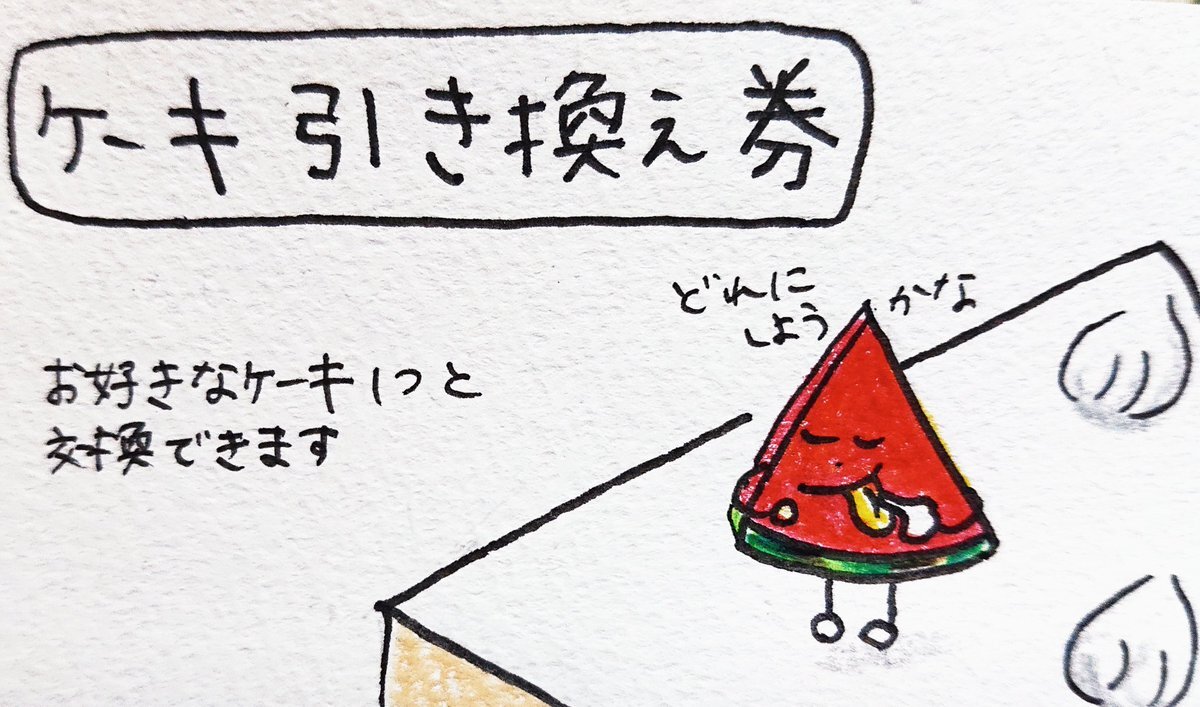 ケーキ引き換え券
どれに
しよう
かな
お好きなケーキ1つと
交換できます